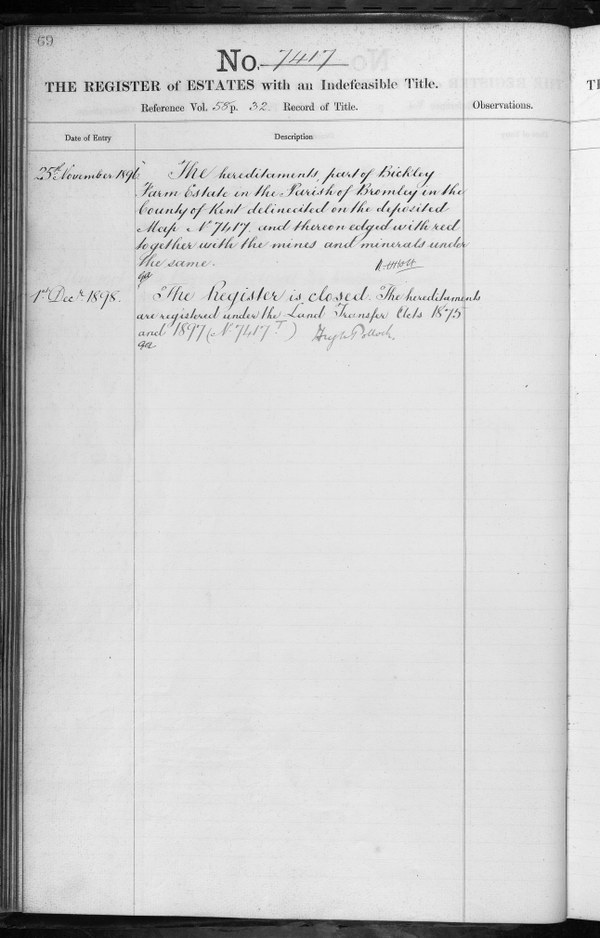 69
No. 7417
THE REGISTER of ESTATES with an Indefeasible Title.
Reference Vol. 58 p. 32. Record of Title.
Observations.
Date of Entry
Description
25th November 1896
The hereditaments, part of Bickley
Farm Estate in the Parish of Bromley in the
County of Kent delineated on the deposited
Map No 7417. and thereon edged with red
together with the mines and minerals under
the same.
1st Decr 1898.
The Register is closed. The hereditaments
are registered under the Land Transfer Acts 1875
and 1897 (No 7417 T) Hugh Pollock.